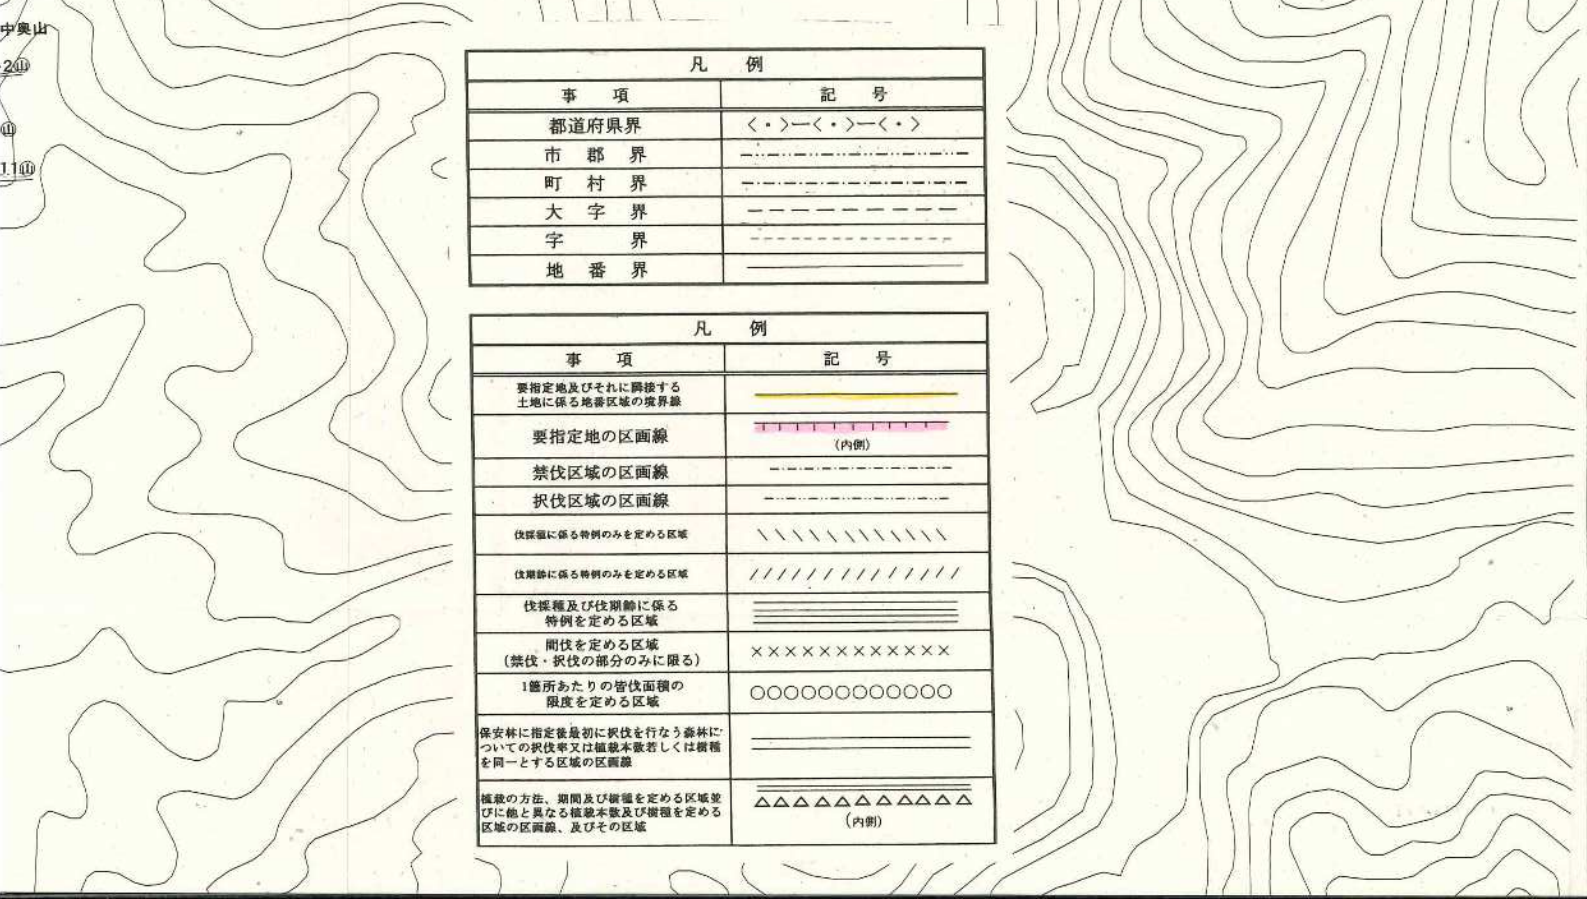 中奥山
2㊤
11㊤
凡 例
事 項 記 号
都道府県界
市 郡 界
町 村 界
大 字 界
字 界
地 番 界
凡 例
事 項 記 号
要指定地及びそれに隣接する
土地に係る地番区域の境界線
要指定地の区画線
(内側)
禁伐区域の区画線
択伐区域の区画線
伐採種に係る特例のみを定める区域
伐期齢に係る特例のみを定める区域
伐採種及び伐期齢に係る
特例を定める区域
間伐を定める区域
(禁伐・択伐の部分のみに限る)
1箇所あたりの皆伐面積の
限度を定める区域
保安林に指定後最初に択伐を行なう森林に
ついての択伐率又は植栽本数若しくは樹種
を同一とする区域の区画線
植栽の方法、期間及び樹種を定める区域並
びに他と異なる植栽本数及び樹種を定める
区域の区画線、及びその区域
(内側)